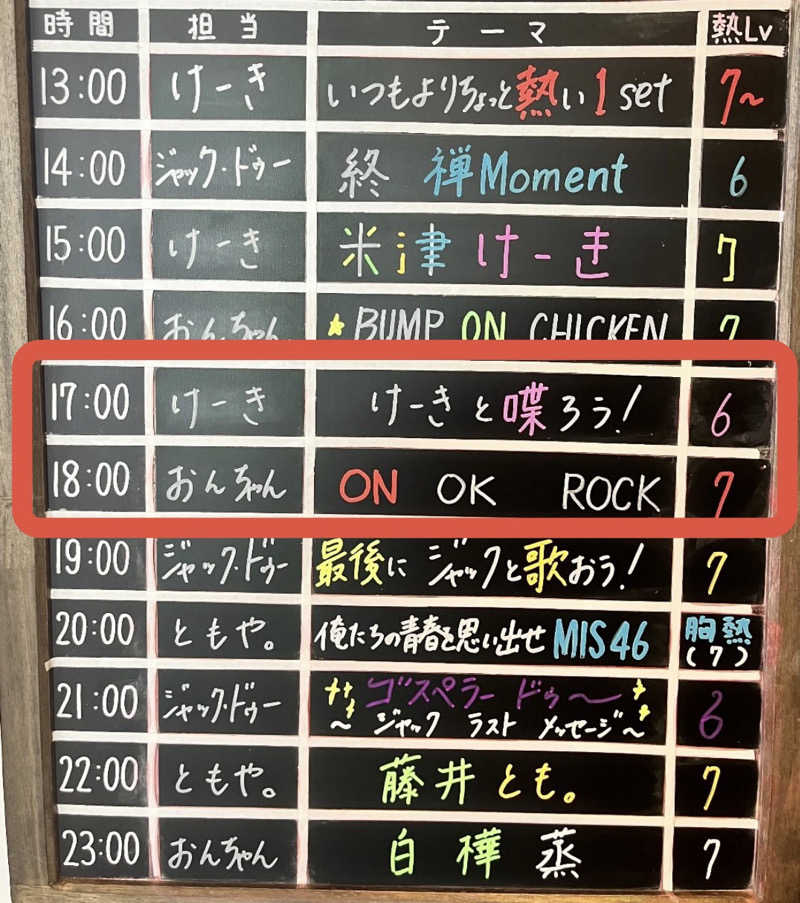 時間 担当 テーマ 熱Lv
13:00 けーき いつもよりちょっと熱い1set 7~
14:00 ジャック・ドゥー 終 禅Moment 6
15:00 けーき 米津けーき 7
16:00 おんちゃん ★BUMP ON CHICKEN 7
17:00 けーき けーきと喋ろう! 6
18:00 おんちゃん ON OK ROCK 7
19:00 ジャック・ドゥー 最後にジャックと歌おう! 7
20:00 ともや。 俺たちの青春を思い出せ MIS46 胸熱
(7)
21:00 ジャック・ドゥー ゴスペラードゥ〜 6
〜ジャック ラスト メッセージ〜
22:00 ともや。 藤井とも。 7
23:00 おんちゃん 白樺蒸 7